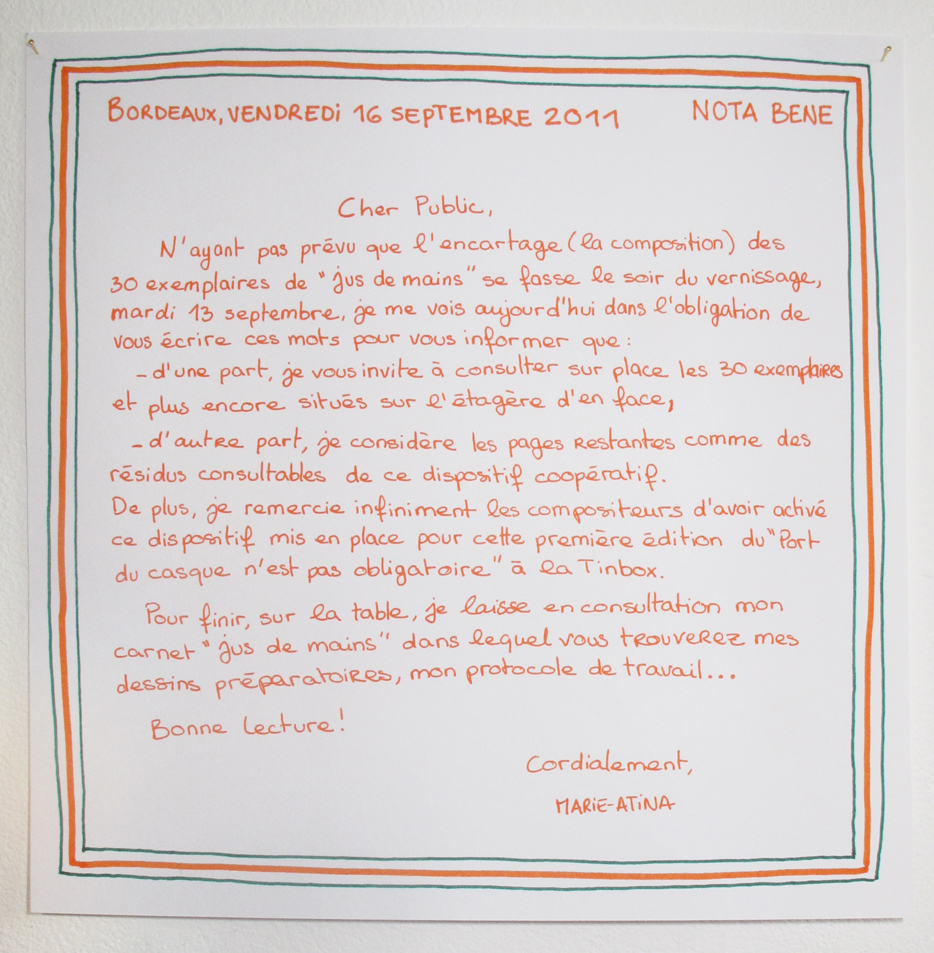 BORDEAUX, VENDREDi 16 SEPTEMBRE 2011 NOTA BENE
Cher Public,
N'ayant pas prévu que l'encartage (la composition) des
30 exemplaires de "jus de mains" se fasse le soir du vernissage,
mardi 13 septembre, je me vois aujourd'hui dans l'obligation de
vous écrire ces mots pour vous informer que :
- d'une part, je vous invite à consulter sur place les 30 exemplaires
et plus encore situés sur l'étagère d'en face,
- d'autre part, je considère les pages restantes comme des
résidus consultables de ce dispositif coopératif.
De plus, je remercie infiniment les compositeurs d'avoir activé
ce dispositif mis en place pour cette première édition du "Port
du casque n'est pas obligatoire" à la Tinbox.
Pour finir, sur la table, je laisse en consultation mon
carnet "jus de mains" dans lequel vous trouverez mes
dessins préparatoires, mon protocole de travail...
Bonne lecture !
Cordialement,
MARiE-ATiNA